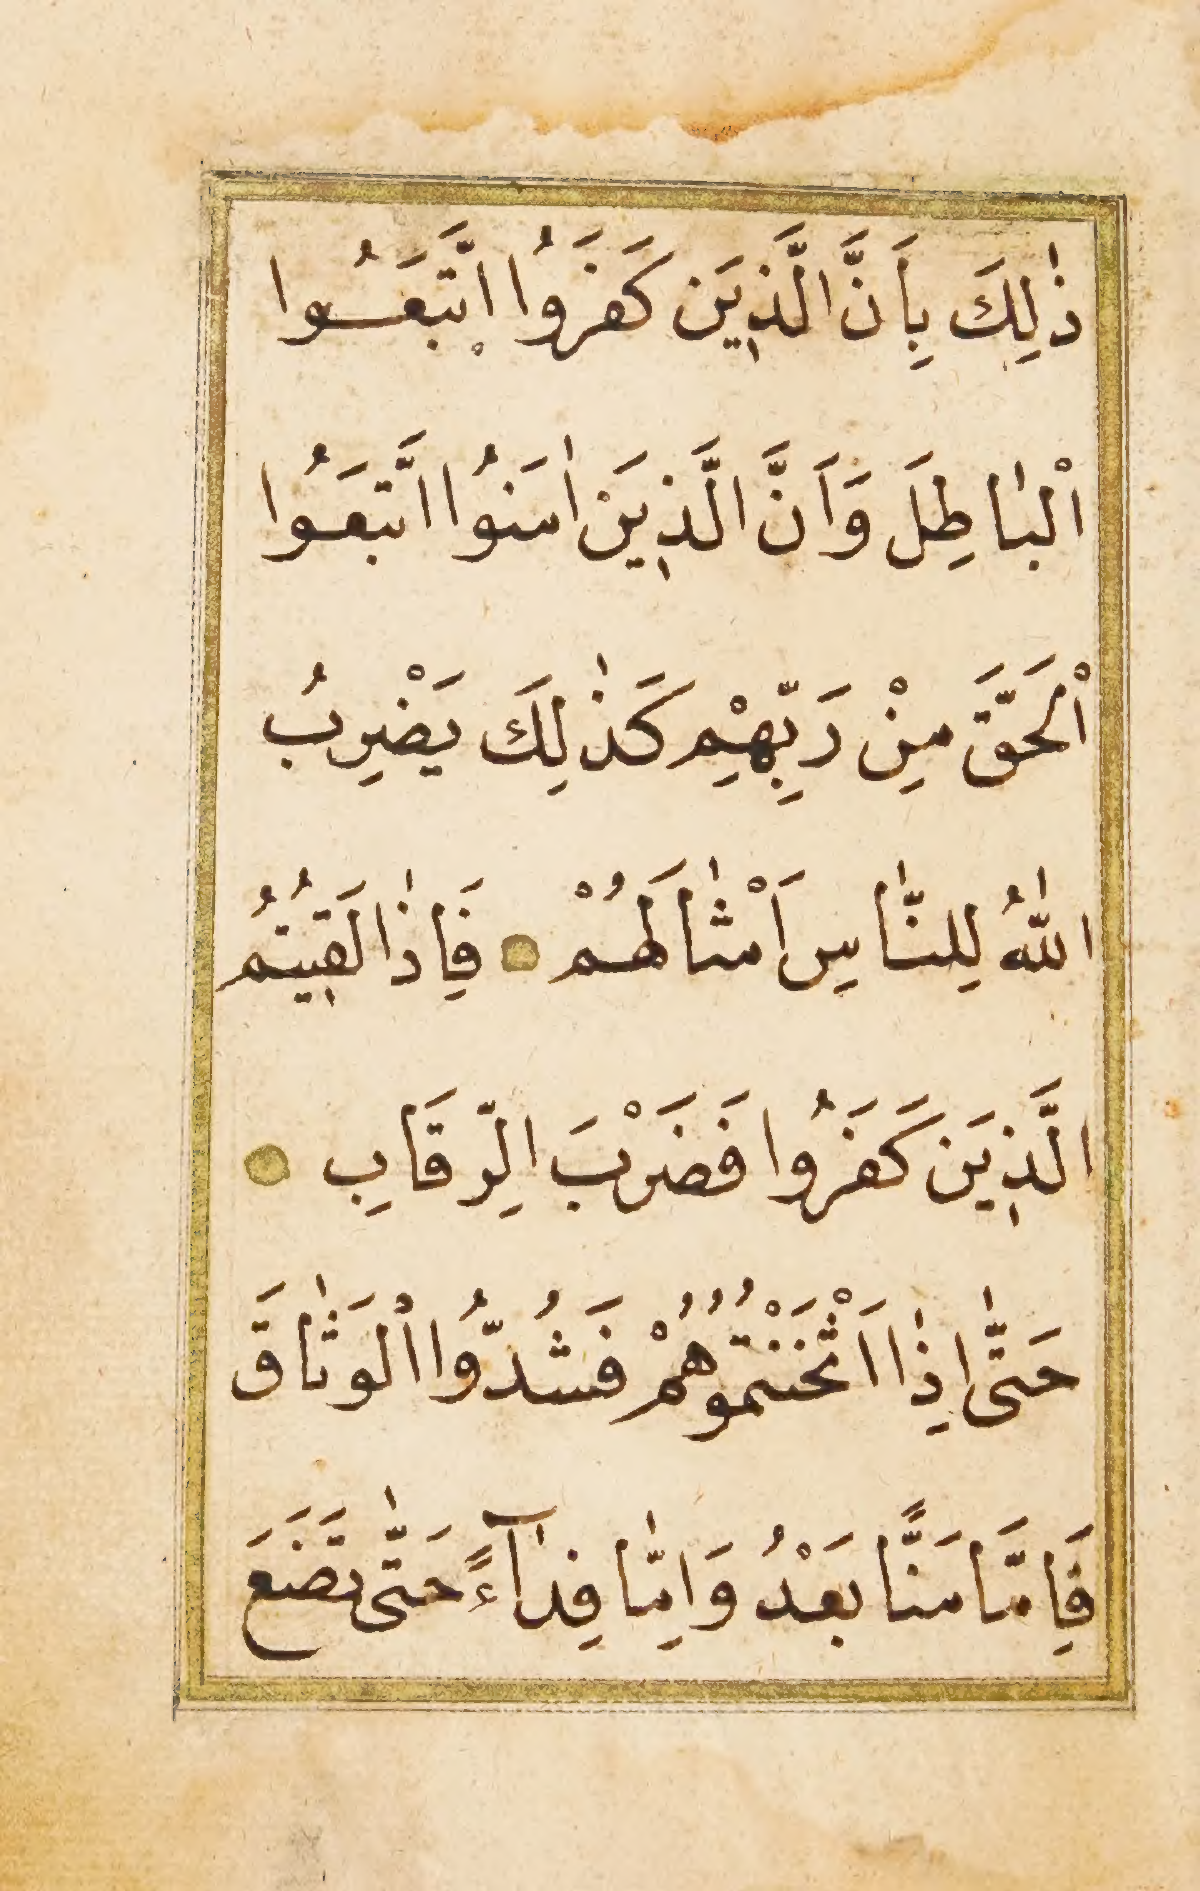 ذٰلِكَ بِاَنَّ الَّذ۪ينَ كَفَرُوا اتَّبَعُوا
الْبَاطِلَ وَاَنَّ الَّذ۪ينَ اٰمَنُوا اتَّبَعُوا
الْحَقَّ مِنْ رَبِّهِمْ كَذٰلِكَ يَضْرِبُ
اللّٰهُ لِلنَّاسِ اَمْثَالَهُمْ ۝ فَاِذَا لَق۪يتُمُ
الَّذ۪ينَ كَفَرُوا فَضَرْبَ الرِّقَابِ ۝
حَتّٰى اِذَا اَثْخَنْتُمُوهُمْ فَشُدُّوا الْوَثَاقَ
فَاِمَّا مَنًّا بَعْدُ وَاِمَّا فِدَآءً حَتّٰى تَضَعَ